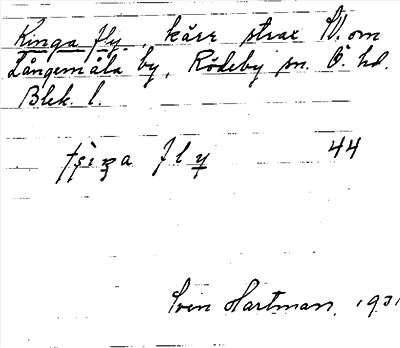 Kinga fly, kärr strax V. om
Långemåla by, Rödeby sn. Ö. hd.
Blek. l.
fly 44
Sven Hartman, 1931